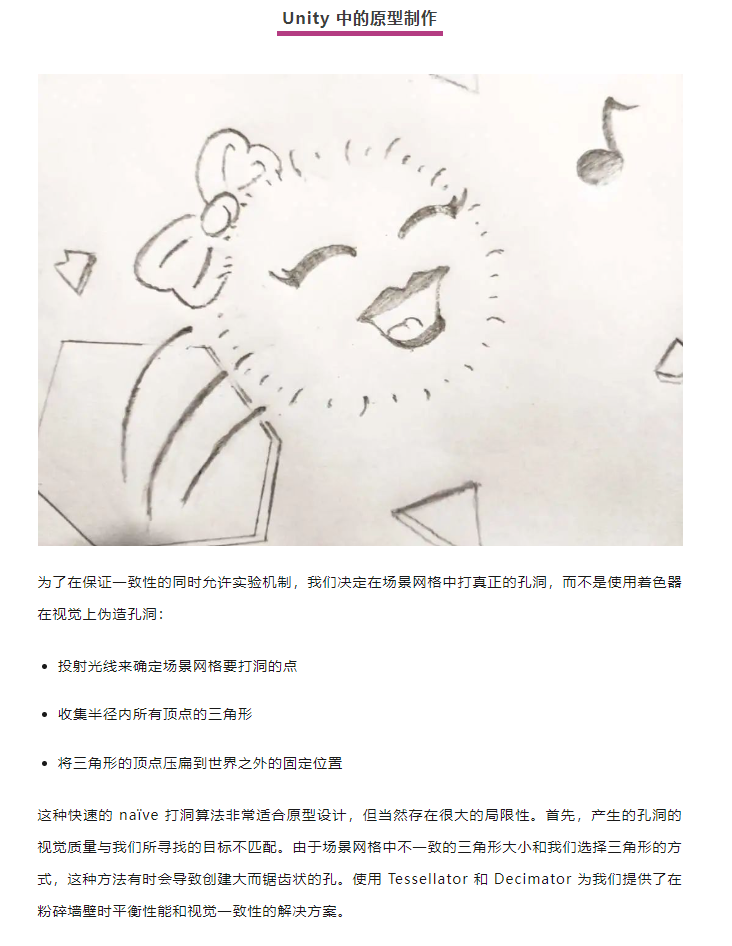 Unity 中的原型制作
为了在保证一致性的同时允许实验机制，我们决定在场景网格中打真正的孔洞，而不是使用着色器
在视觉上伪造孔洞：
• 投射光线来确定场景网格要打洞的点
• 收集半径内所有顶点的三角形
• 将三角形的顶点压扁到世界之外的固定位置
这种快速的 naïve 打洞算法非常适合原型设计，但当然存在很大的局限性。首先，产生的孔洞的
视觉质量与我们所寻找的目标不匹配。由于场景网格中不一致的三角形大小和我们选择三角形的方
式，这种方法有时会导致创建大而锯齿状的孔。使用 Tessellator 和 Decimator 为我们提供了在
粉碎墙壁时平衡性能和视觉一致性的解决方案。